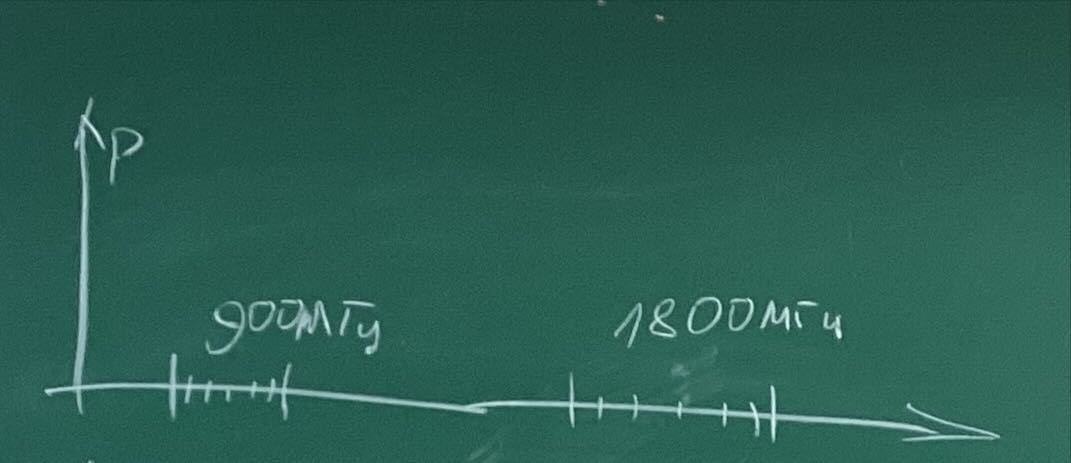 P
900МГц
1800МГц